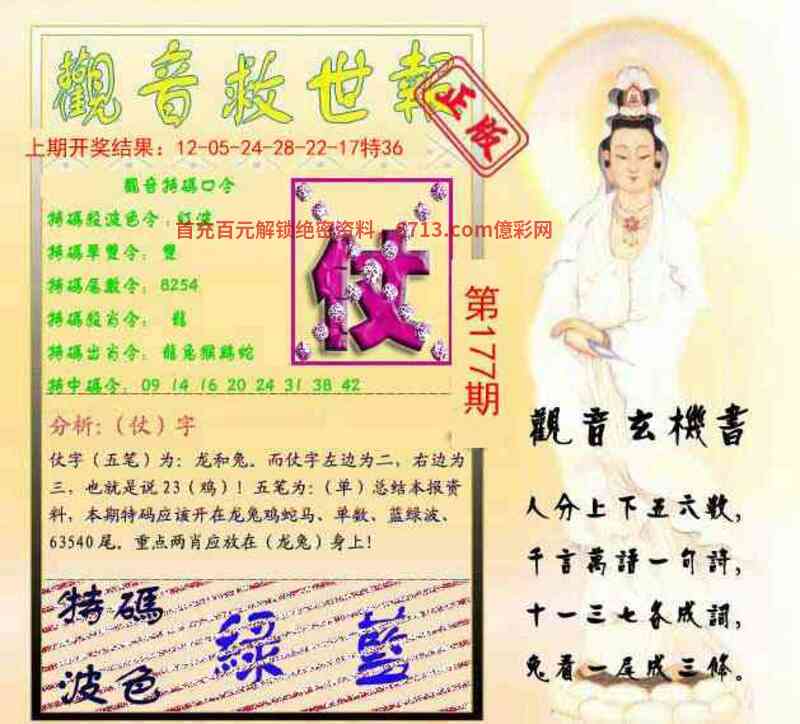 觀音救世報
正版
上期开奖结果：12-05-24-28-22-17特36
觀音特碼口令
特碼殺波色令：紅波
首充百元解锁绝密资料，8713.com億彩网
特碼單雙令：雙
特碼尾數令：8254
特碼殺肖令：龍
特碼出肖令：龍兔猴鷄蛇
特中碼令：09 14 16 20 24 31 38 42
仗
第177期
分析:（仗）字
仗字（五笔）为：龙和兔。而仗字左边为二，右边为
三，也就是说23（鸡）！五笔为:（单）总结本报资
料，本期特码应该开在龙兔鸡蛇马、单数、蓝绿波、
63540尾。重点两肖应放在（龙兔）身上!
特碼
波色
綠 藍
觀音玄機書
人分上下五六數，
千言萬語一句詩，
十一三七各成詞，
兔看一尾成三條。